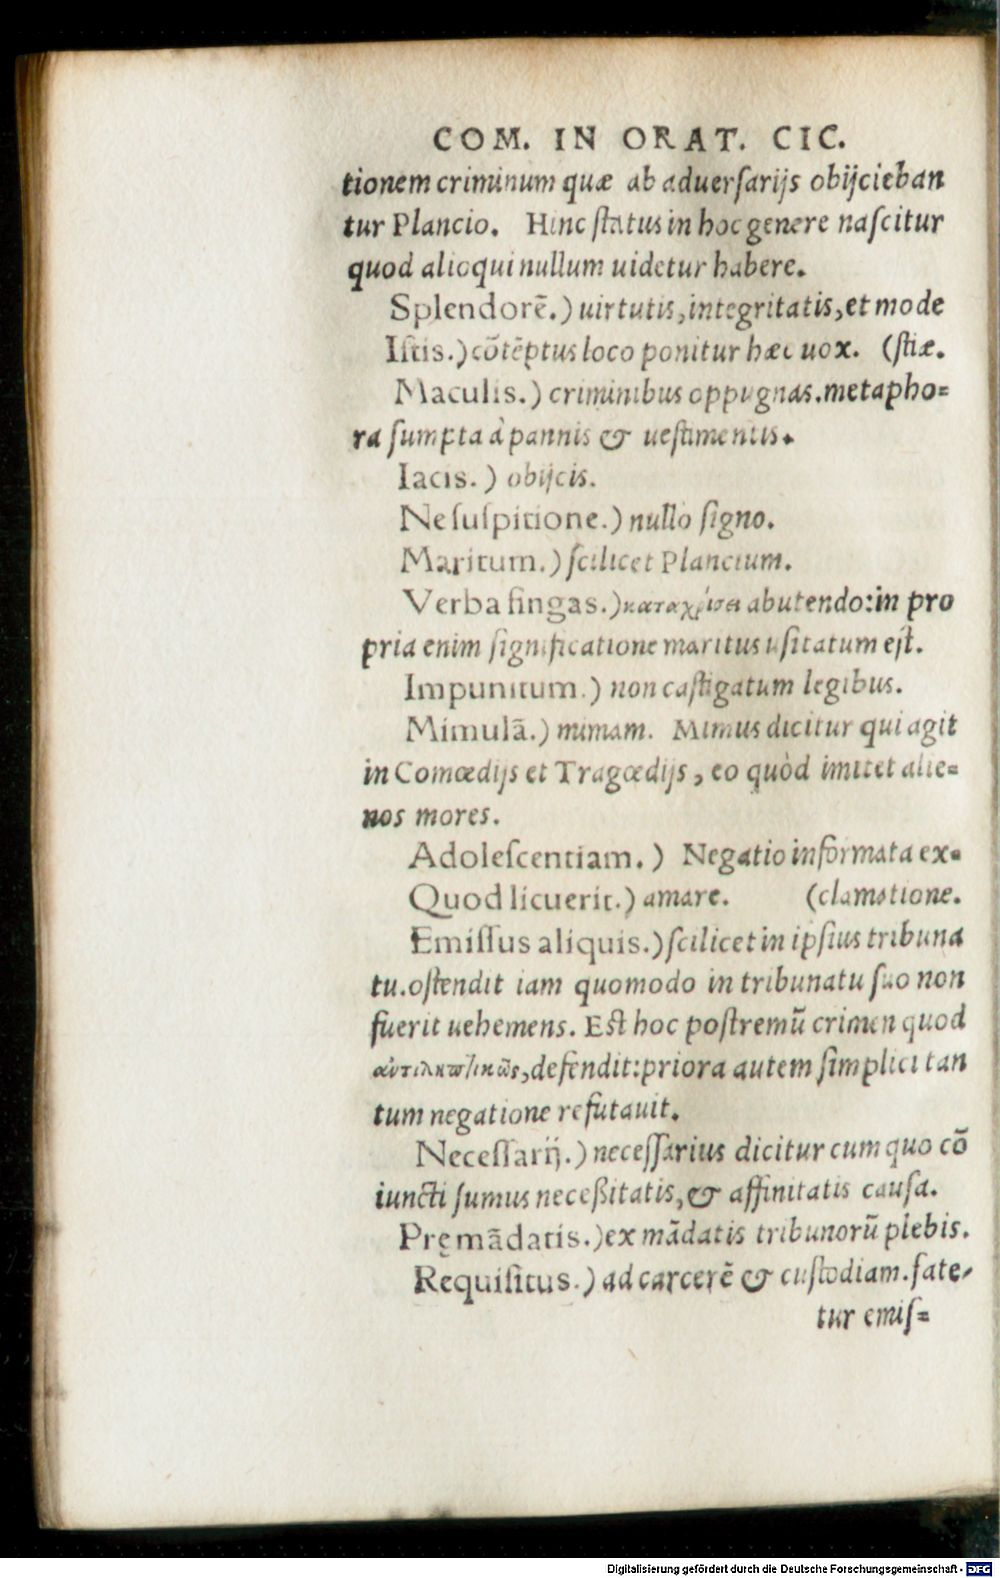 COM. IN ORAT. CIC.
tionem criminum quæ ab aduerſarijs obijcieban
tur Plancio. Hinc ſtatus in hoc genere naſcitur
quod alioqui nullum uidetur habere.
Splendorē.) uirtutis, integritatis, et mode
Iſtis.) cōtēptus loco ponitur hæc uox. (ſtiæ.
Maculis.) criminibus oppugnas. metapho=
ra ſumpta à pannis & ueſtimentis.
Iacis.) obijcis.
Ne ſuſpitione.) nullo ſigno.
Maritum.) ſcilicet Plancium.
Verba fingas.) καταχρήσει abutendo: in pro
pria enim ſignificatione maritus uſitatum eſt.
Impunitum.) non caſtigatum legibus.
Mimulā.) mimam. Mimus dicitur qui agit
in Comœdijs et Tragœdijs, eo quòd imitet alie=
nos mores.
Adoleſcentiam.) Negatio informata ex=
Quod licuerit.) amare. (clamatione.
Emiſſus aliquis.) ſcilicet in ipſius tribuna
tu. oſtendit iam quomodo in tribunatu ſuo non
fuerit uehemens. Eſt hoc poſtremū crimen quod
defendit: priora autem ſimplici tan
tum negatione refutauit.
Neceſſarij.) neceſſarius dicitur cum quo cō
iuncti ſumus neceßitatis, & affinitatis cauſa.
Pręmādatis.) ex mādatis tribunorū plebis.
Requiſitus.) ad carcerē & cuſtodiam. fate=
tur emiſ=
Digitalisierung gefördert durch die Deutsche Forschungsgemeinschaft - DFG